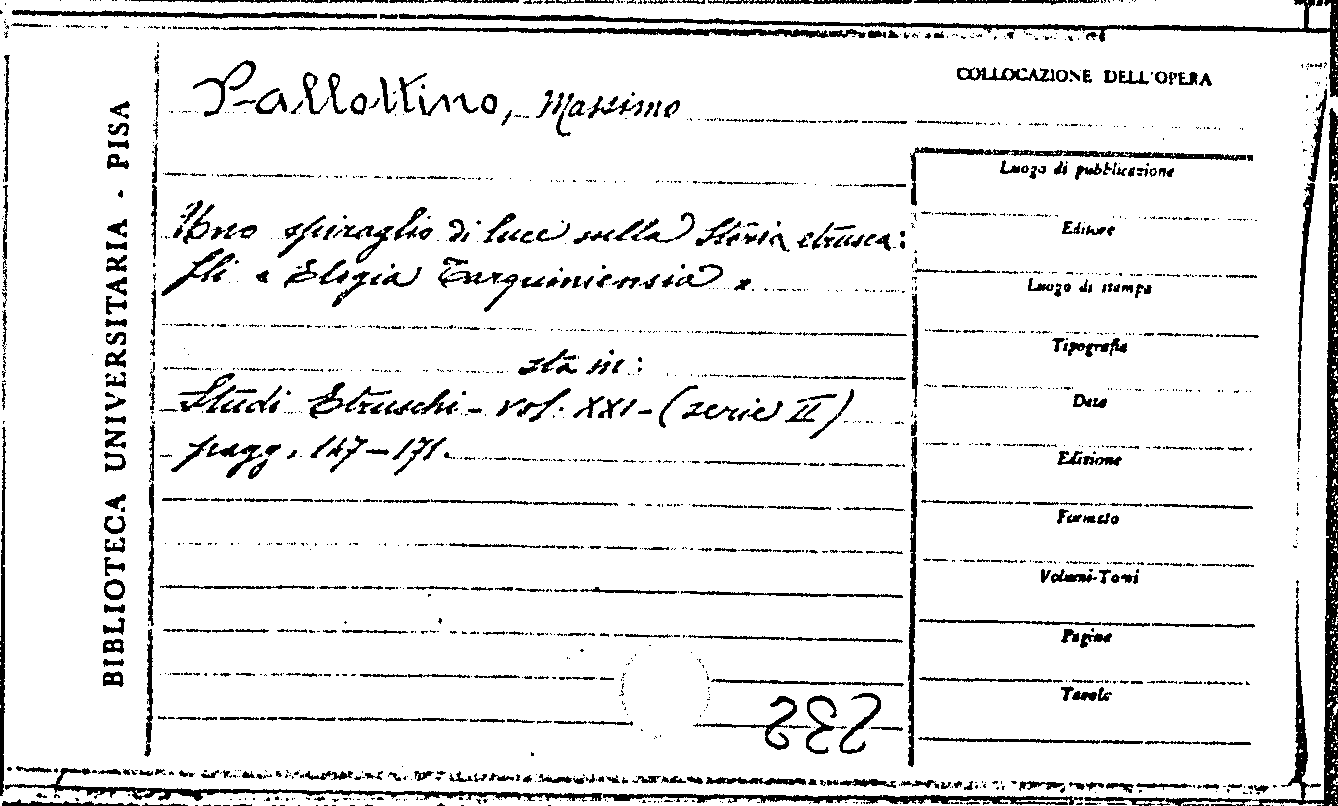 BIBLIOTECA UNIVERSITARIA - PISA
Pallottino, Massimo
Uno spiraglio di luce sulla Storia etrusca:
Gli « Elogia Tarquiniensia »
sta in:
Studi Etruschi - vol. XXI - (serie II)
pagg. 147-171.
COLLOCAZIONE DELL'OPERA
Luogo di pubblicazione
Editore
Luogo di stampa
Tipografia
Data
Edizione
Formato
Volumi-Tomi
Pagine
Tavole